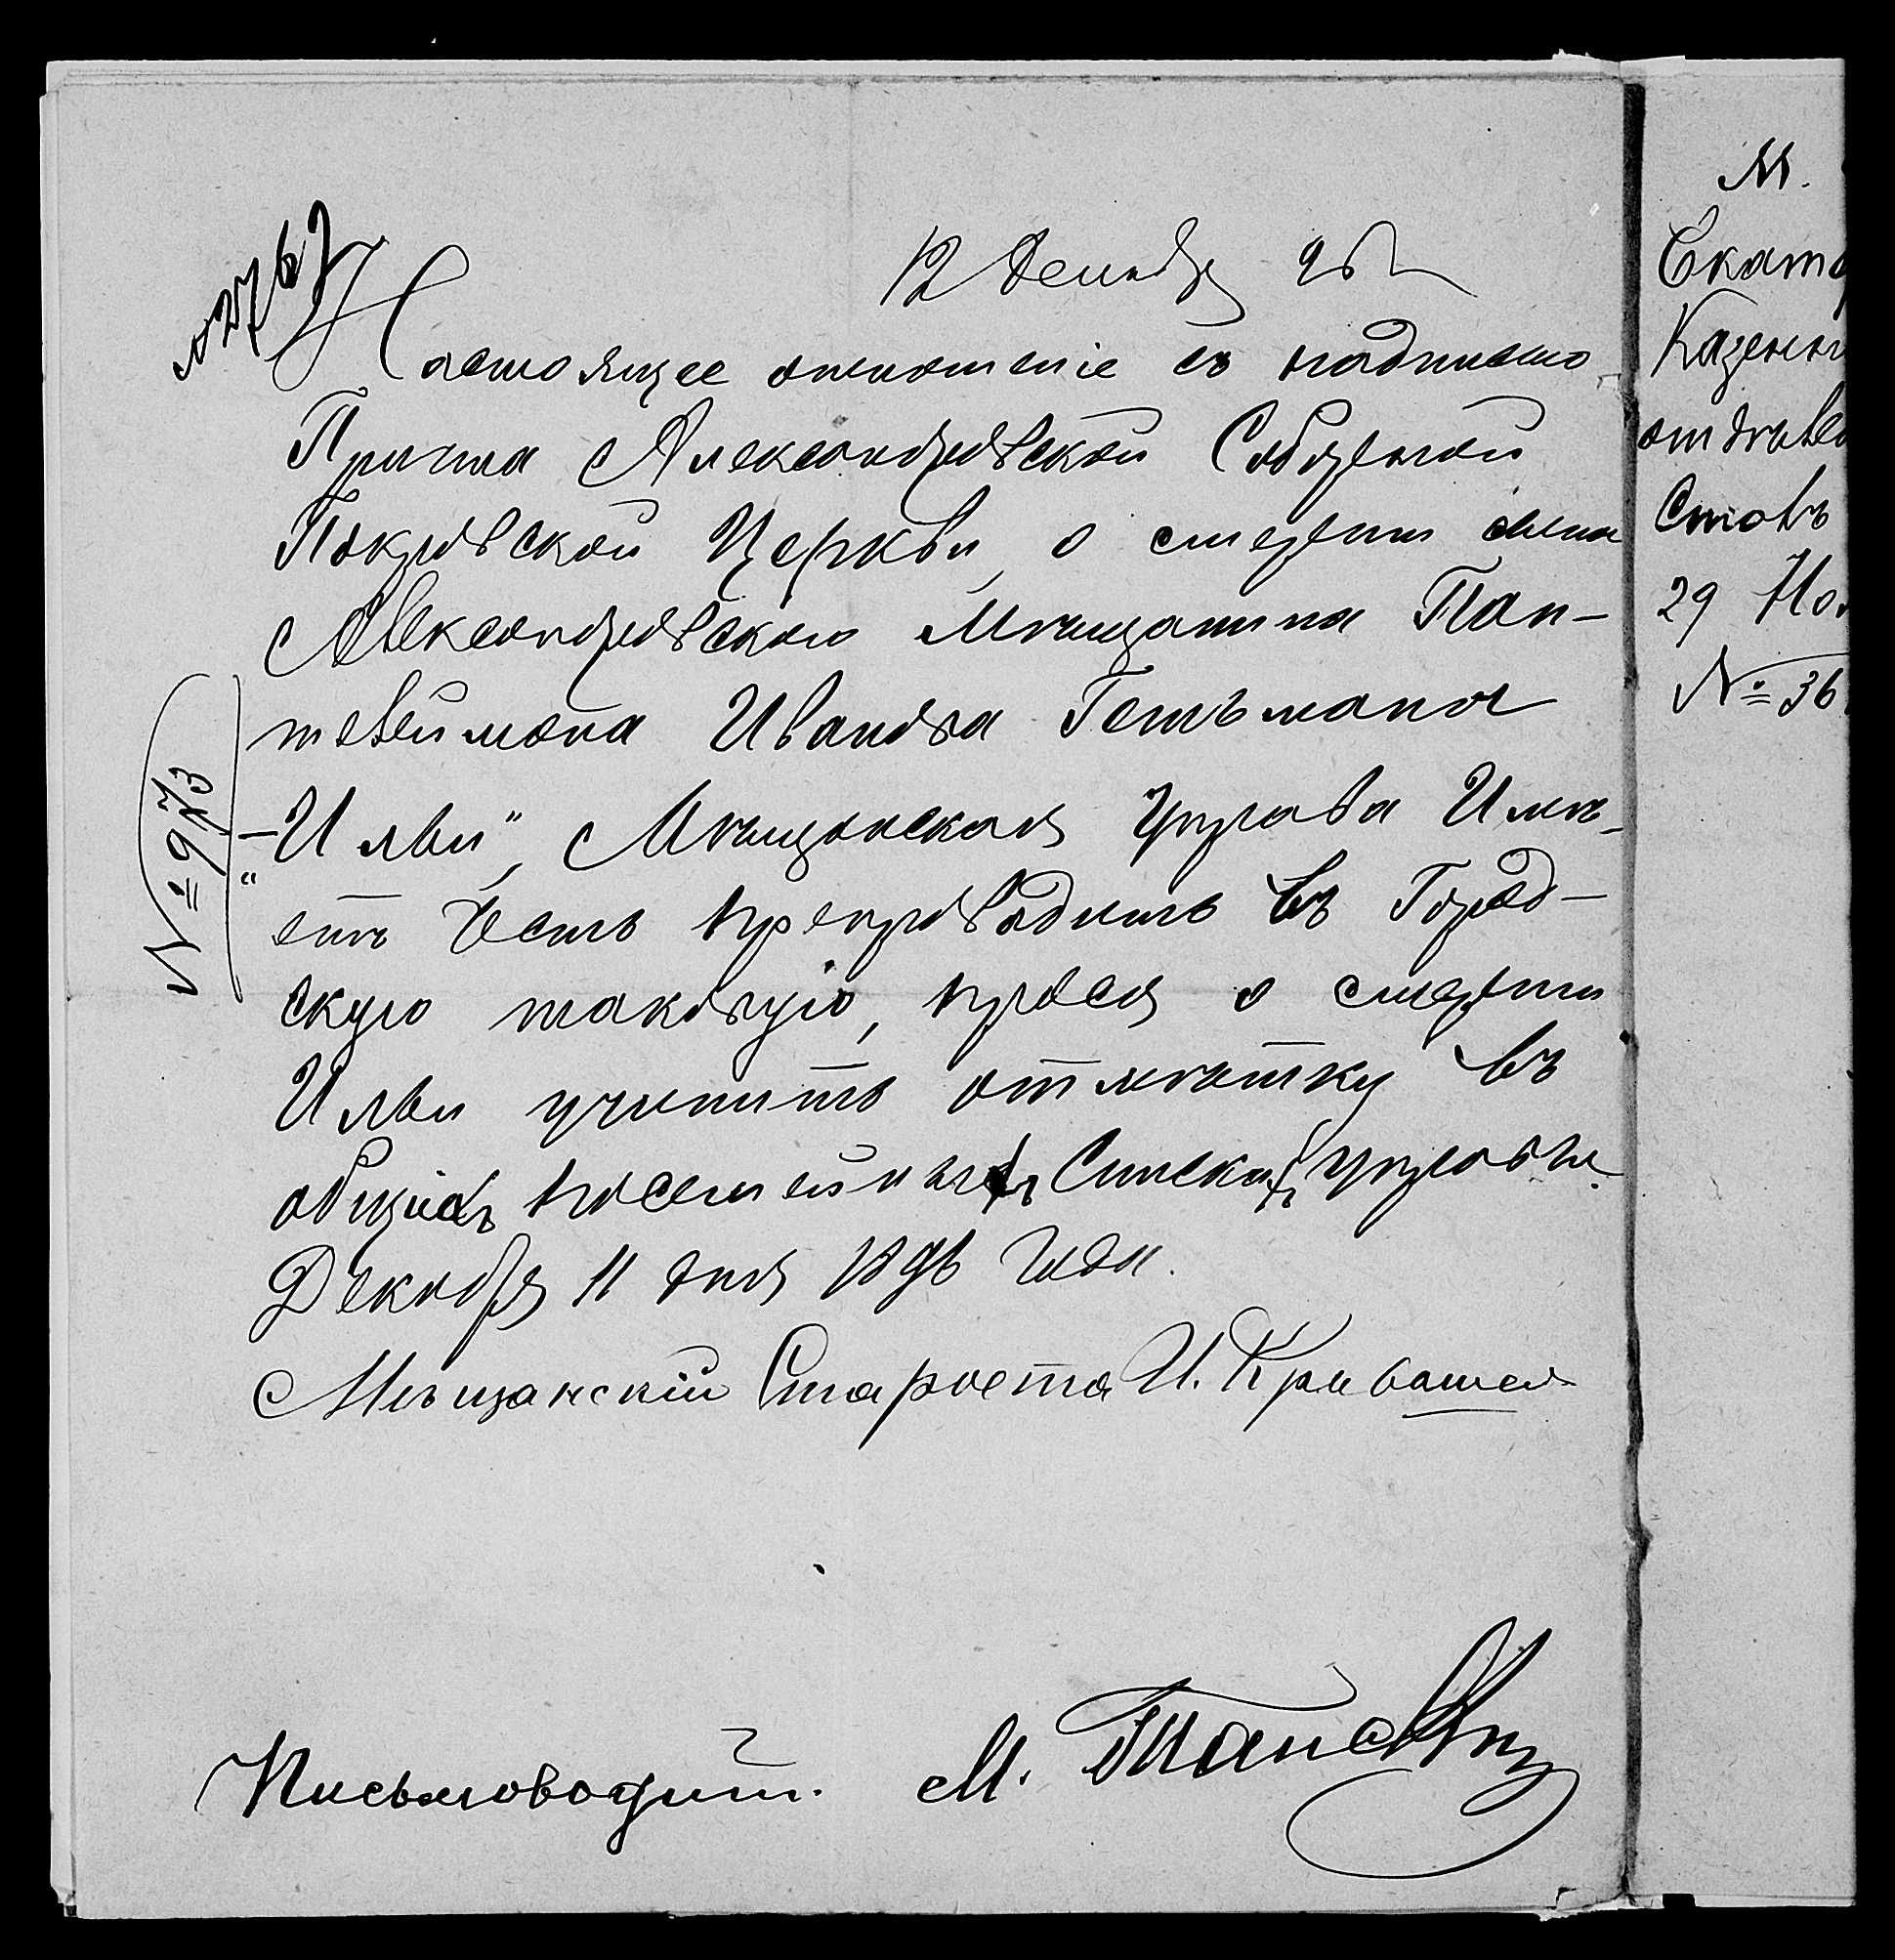 № 2767
12 Декабр 96 г
Настоящее отношеніе съ надписью
Причта Александровской Соборной
Покровской Церкви, о смерти сына
Александровскаго Мѣщанина Пан-
телеймона Иванова Гетьмана
"Ильи", Мѣщанская Управа Имѣ-
етъ Честь препроводить въ Город-
скую таковую, прося о смерти
Ильи учинить отмѣтку въ
общихъ посемейныхъ Спискахъ Управы.
Декабря 11 дня 1896 года.
Мѣщанскій Староста И.
Письмоводит. М.
№ 973
М.
Екате
Казенн
отдѣле
Столъ
29 Но
№ 36